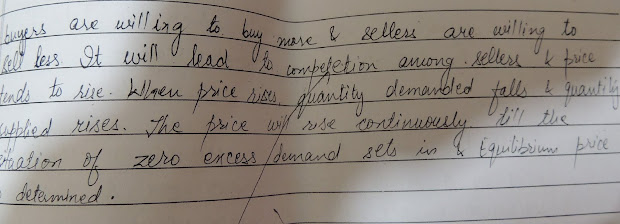 buyers are willing to buy more & sellers are willing to
sell less. It will lead to competetion among sellers & price
tends to rise. When price rises, quantity demanded falls & quantity
supplied rises. The price will rise continuously till the
situation of zero excess demand sets in & Equilibrium price
determined.